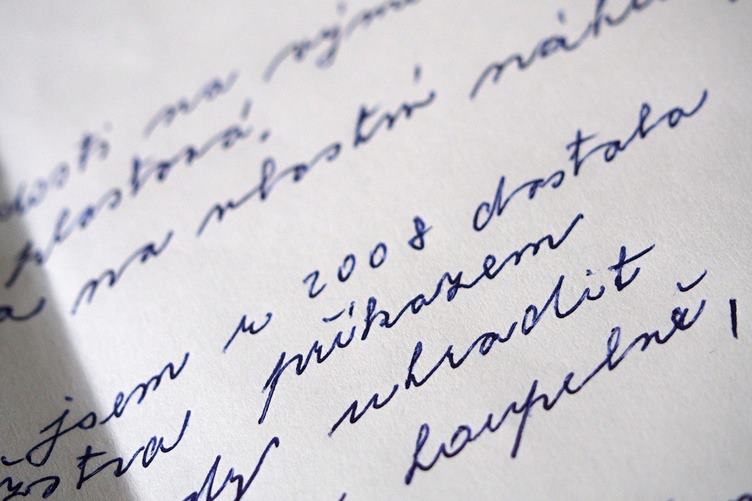 dosti na vým
plastová.
a na vlastní náh
jsem v 2008 dostala
žstva příkazem
dy uhradit
koupelně,